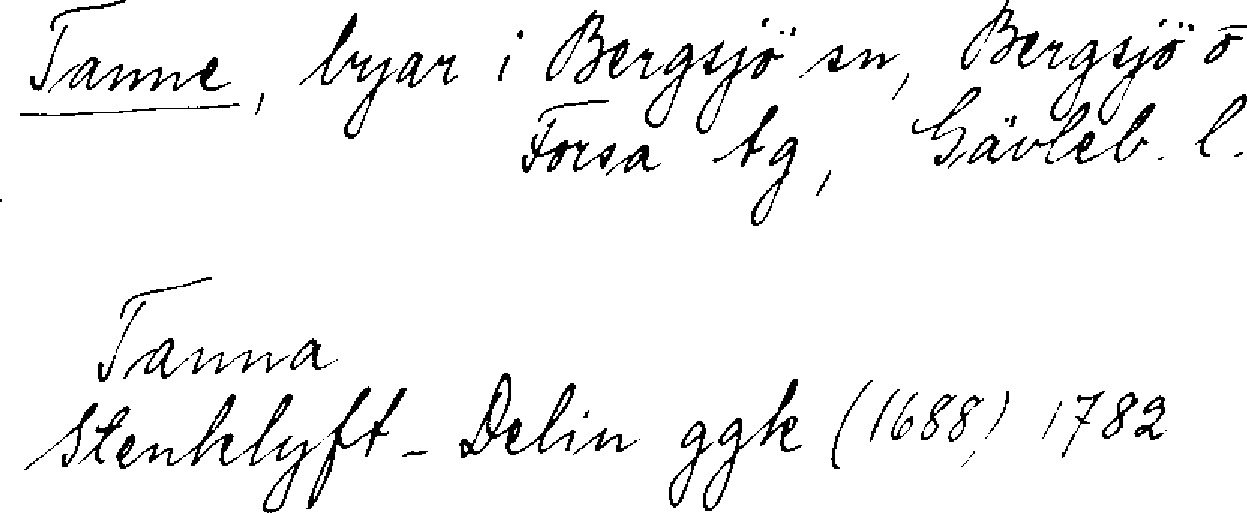 Tanne, byar i Bergsjö sn, Bergsjö o
Forsa tg, Gävleb. l.
Tanna
Stenklyft - Delin ggk (1688) 1782